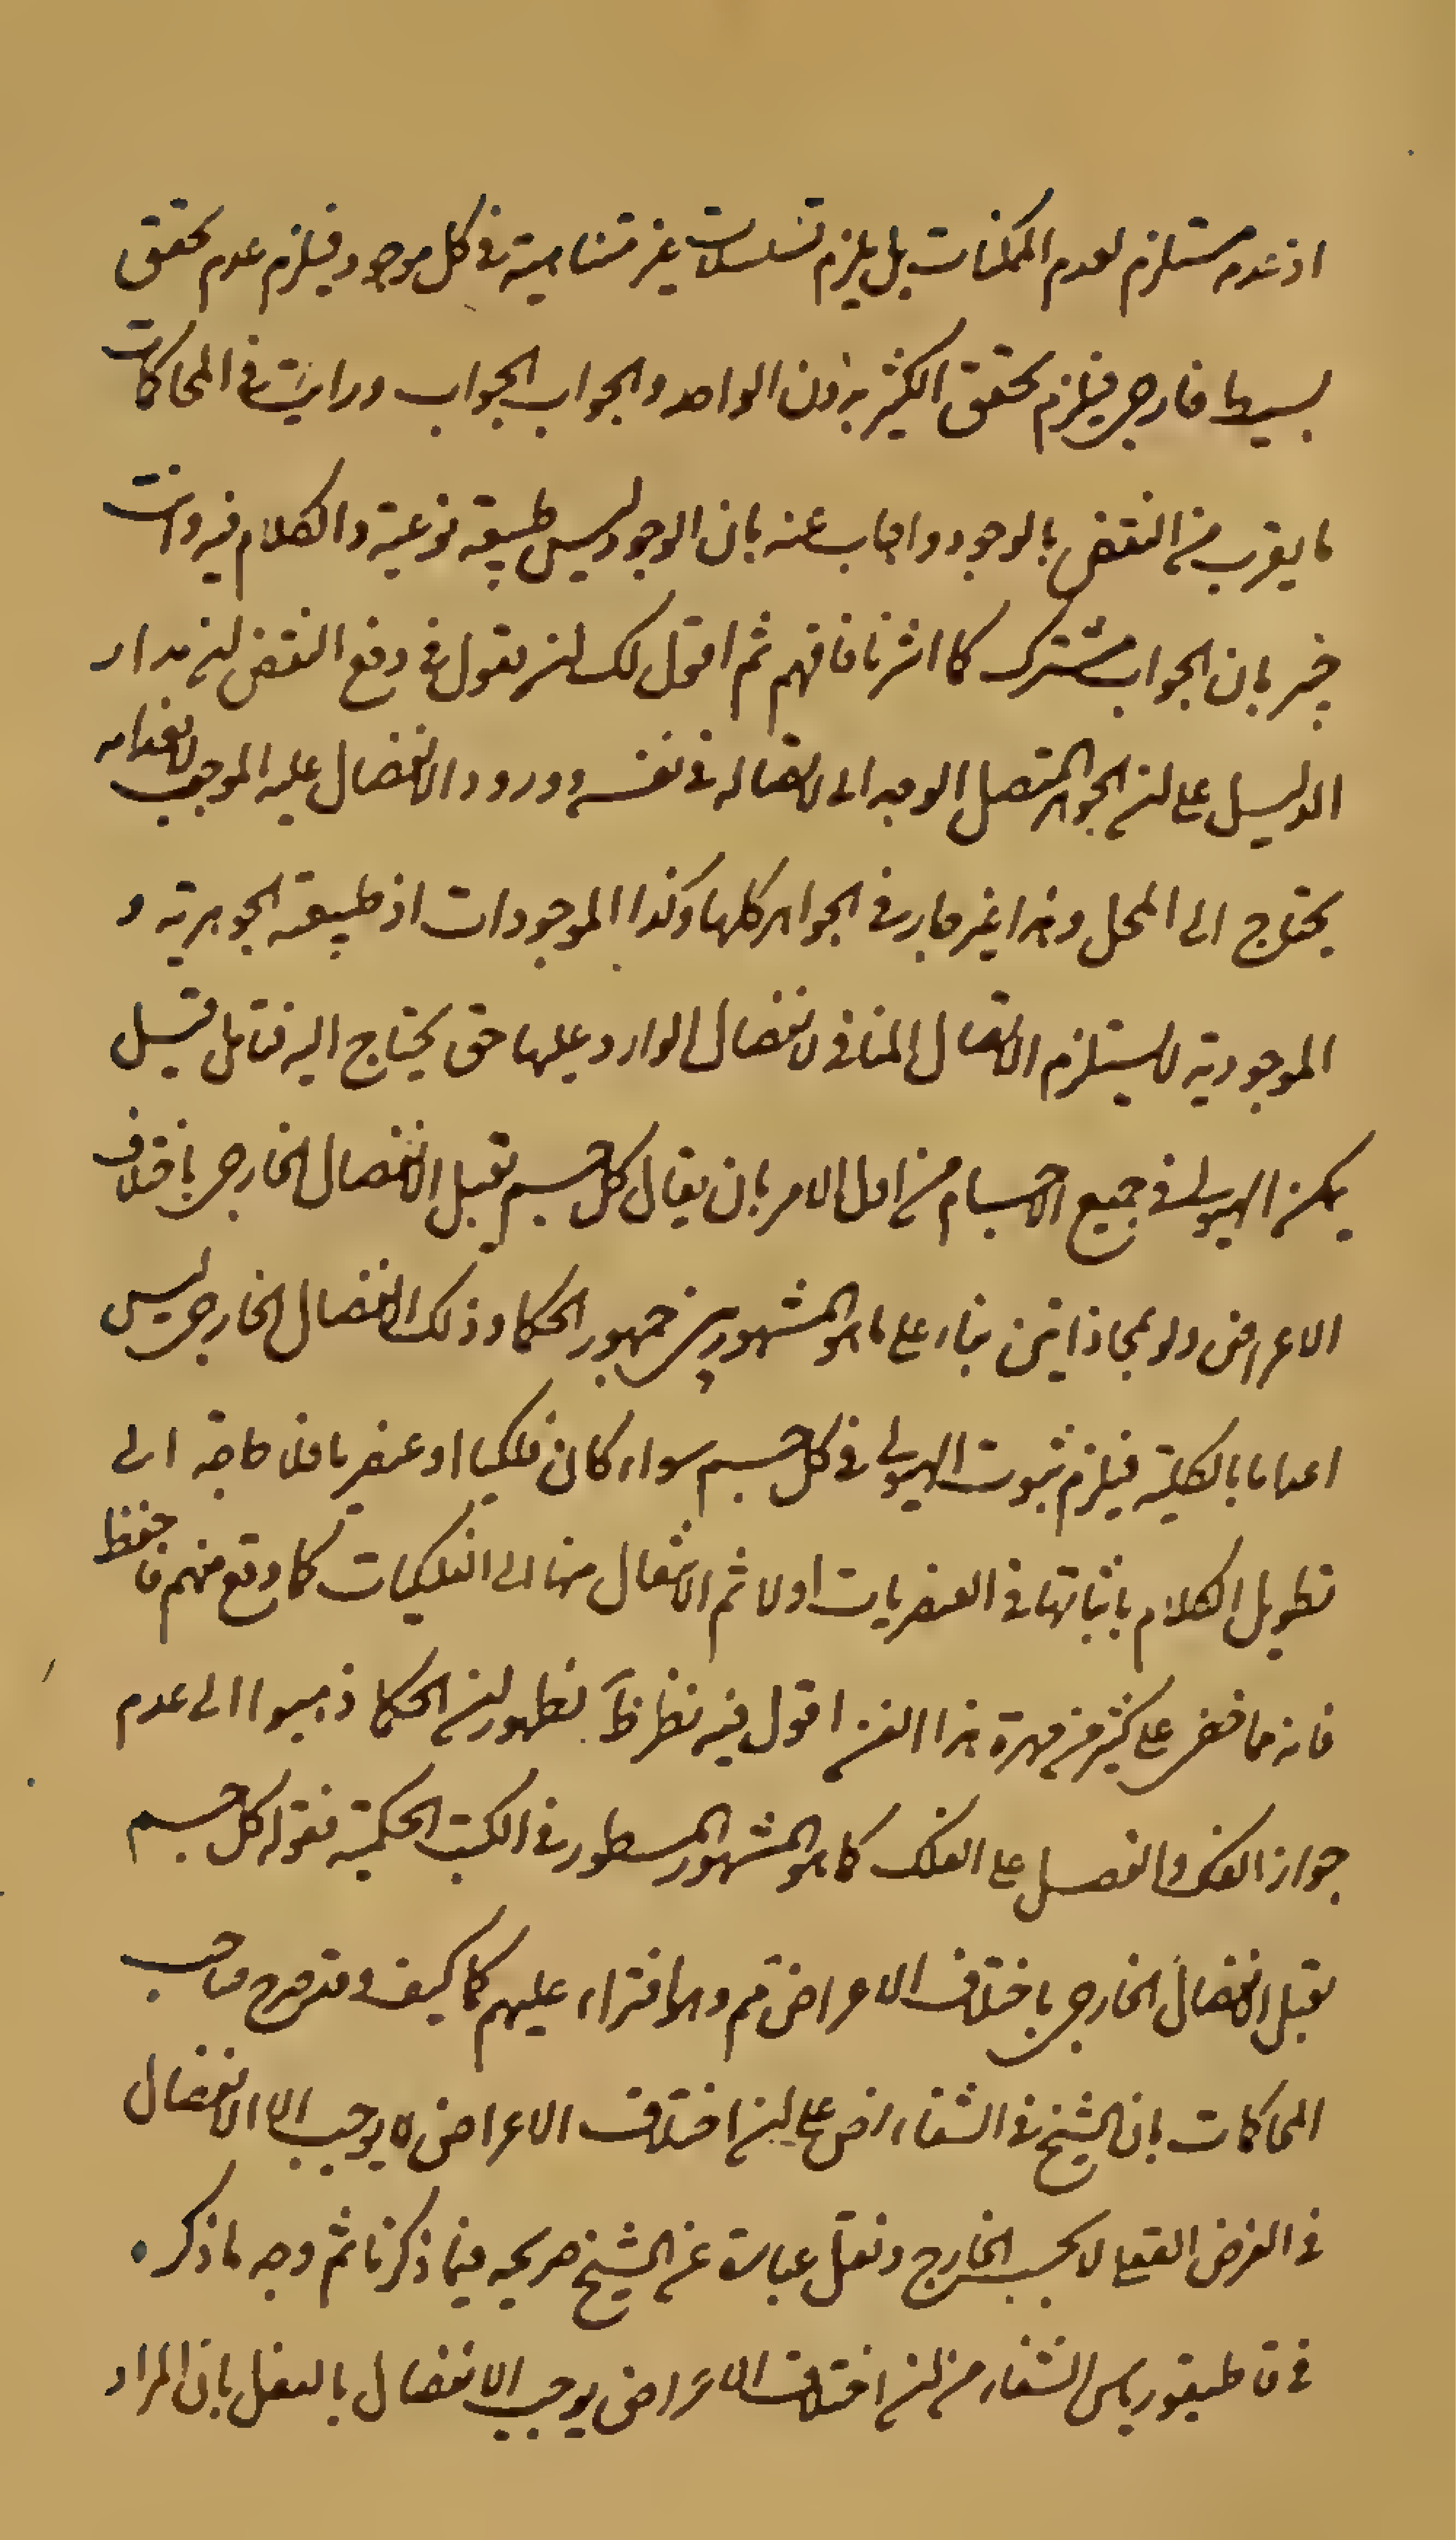 اذ عدمه مستلزم لعدم الممكنات بل يلزم تسلسلات غير متناهية في كل موجود فيلزم عدم تحقق
بسيط خارجي فيلزم تحقق الكثير بدون الواحد والجواب الجواب ورايت في المحاكمات
ما يقرب من النقض بالوجود واجاب عنه بان الوجود ليس طبيعة نوعية والكلام فيه وانت
خبير بان الجواب مشترك كما اشرنا فافهم ثم اقول لك ان تقول في دفع النقض ان مدار
الدليل على ان الجوهر المتصل الوحداني لاتصاله في نفسه وورود الانفصال عليه الموجب لانعدامه
يحتاج الى المحل وهذا غير جار في الجواهر كلها وكذا الموجودات اذ طبيعة الجوهرية و
الموجودية لا يستلزم الاتصال المنافي لانفصال الوارد عليها حتى يحتاج اليه فتامل قيل
يمكن الهيولى في جميع الاجسام من اول الامر بان يقال كل جسم يقبل الانفصال الخارجي باختلاف
الاعراض ولو بمحاذاتين بناء على ما هو المشهور من جمهور الحكما وذلك الانفصال الخارجي ليس
اعداما بالكلية فيلزم ثبوت الهيولى في كل جسم سواء كان فلكيا او عنصريا فلا حاجة الى
تطويل الكلام باثباتها في العنصريات اولا ثم الانتقال منها الى الفلكيات كما وقع منهم فاحفظ
فانه مما خفي على كثير من مهرة هذا الفن اقول فيه نظر ظ لظهور ان الحكما ذهبوا الى عدم
جواز الفك والفصل على الفلك كما هو المشهور المسطور في الكتب الحكمية فقوله كل جسم
يقبل الانفصال الخارجي باختلاف الاعراض ثم وهو افتراء عليهم كما كيف وقد صرح صاحب
المحاكمات بان الشيخ في الشفاء نص على ان اختلاف الاعراض لا يوجب الا الانفصال
في الفرض العقلي لا بحسب الخارج ونقل عبارة عن الشيخ صريحه فيما ذكرنا ثم وجه ما ذكره
في قاطيغورياس الشفاء من ان اختلاف الاعراض يوجب الانفصال بالفعل بان المراد